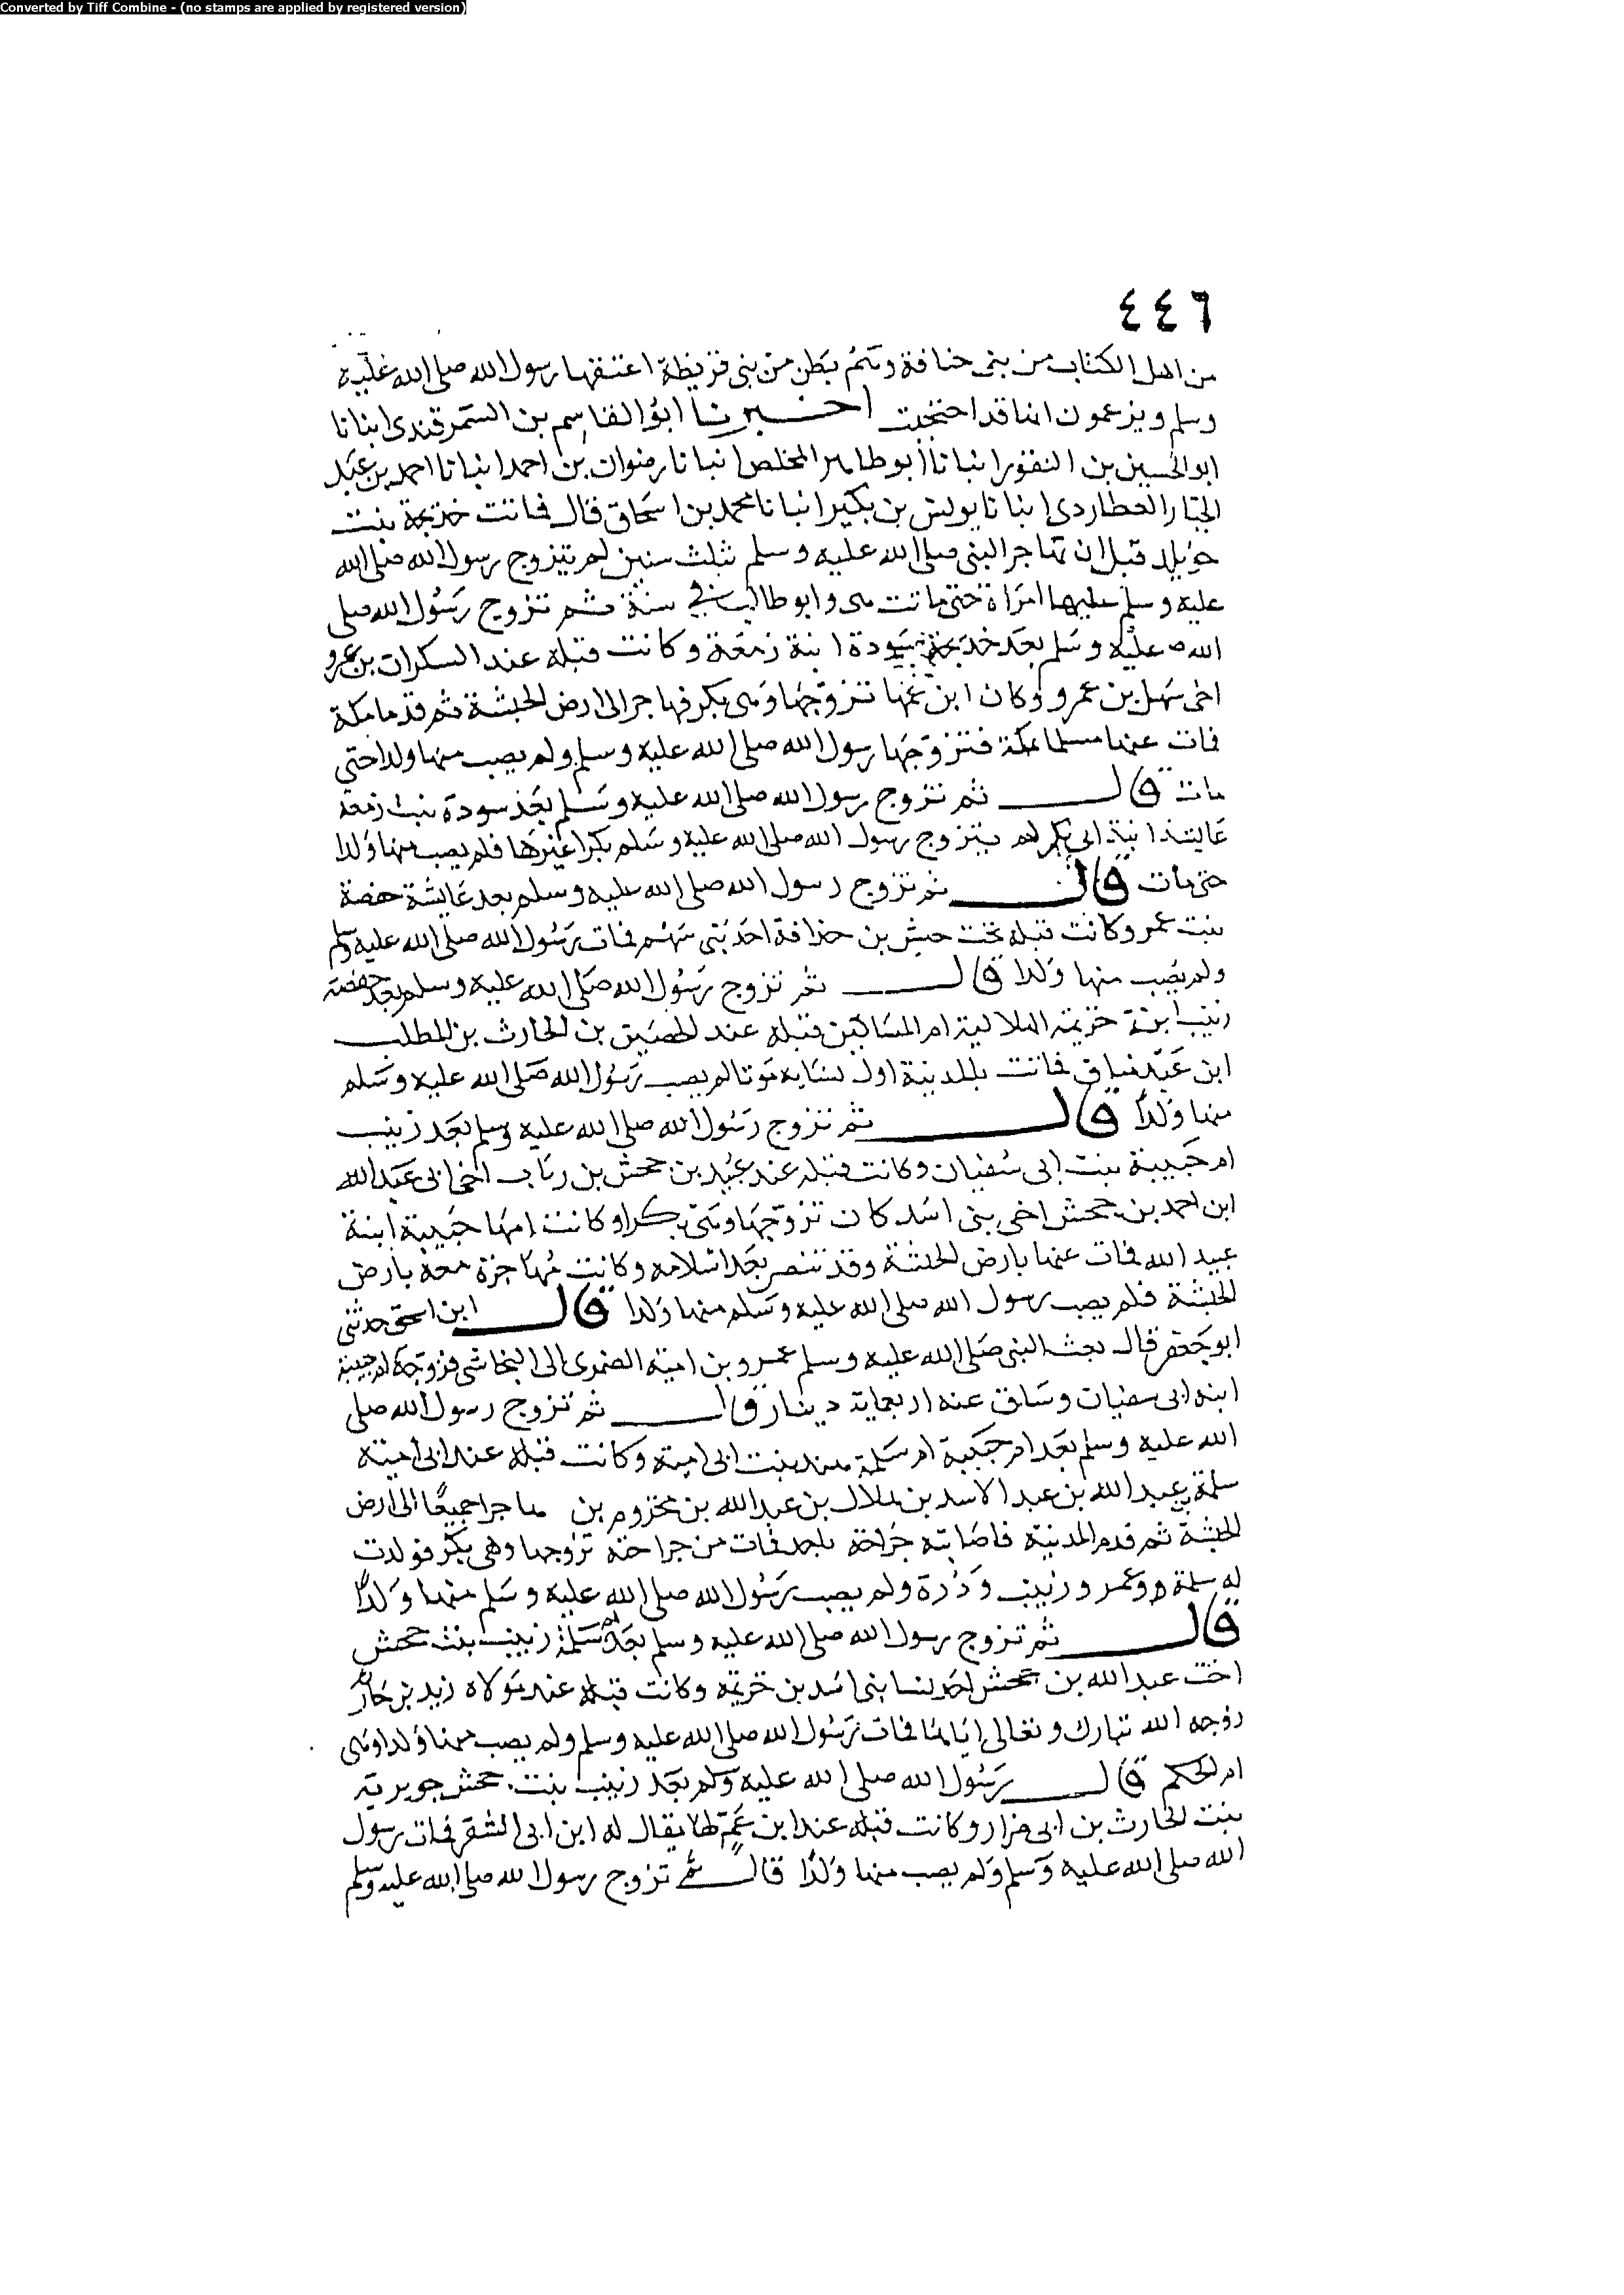 Converted by Tiff Combine - (no stamps are applied by registered version)
٤٤٦
من اهل الكتاب من بنى خنافة وهم بطن من بنى قريظة اعتقها رسول الله صلى الله عليه
وسلم ويزعمون انها قد احتجبت اخبرنا ابو القاسم بن السمرقندى انبانا
ابو الحسين بن النقور انبانا ابو طاهر المخلص انبانا رضوان بن احمد انبانا احمد بن عبد
الجبار العطاردى انبانا يونس بن بكير انبانا محمد بن اسحاق قال فماتت خديجة بنت
خويلد قبل ان تهاجر النبى صلى الله عليه وسلم بثلث سنين لم يتزوج رسول الله صلى الله
عليه وسلم عليها امراة حتى ماتت هى وابو طالب فى سنة ثم تزوج رسول الله صلى
الله عليه وسلم بعد خديجة سودة ابنة زمعة وكانت قبله عند السكران بن عمرو
اخى سهل بن عمرو وكان ابن عمها تزوجها وهى بكر فهاجر الى ارض الحبشة ثم قدما مكة
فمات عنها مسلما بمكة فتزوجها رسول الله صلى الله عليه وسلم ولم يصب منها ولدا حتى
مات قال ثم تزوج رسول الله صلى الله عليه وسلم بعد سودة بنت زمعة
عايشة ابنة ابى بكر لم يتزوج رسول الله صلى الله عليه وسلم بكرا غيرها فلم يصب منها ولدا
حتى مات قال ثم تزوج رسول الله صلى الله عليه وسلم بعد عايشة حفصة
بنت عمر وكانت قبله تحت حبش بن حذافة احد بنى سهم فمات رسول الله صلى الله عليه وسلم
ولم يصب منها ولدا قال ثم تزوج رسول الله صلى الله عليه وسلم بعد حفصة
زينب ابنة خزيمة الهلالية ام المساكين قبله عند الحصين بن الحارث بن المطلب
ابن عبد مناف فماتت بالمدينة اول نسايه موتا لم يصب رسول الله صلى الله عليه وسلم
منها ولدا قال ثم تزوج رسول الله صلى الله عليه وسلم بعد زينب
ام حبيبة بنت ابى سفيان وكانت قبله عند عبيد بن جحش بن رئاب اخى ابى عبد الله
ابن احمد بن جحش اخى بنى اسد كان تزوجها وهى بكرا وكانت امها حبيبة ابنة
عبيد الله فمات عنها بارض الحبشة وقد تنصر بعد اسلامه وكانت مهاجرة معه بارض
الحبشة فلم يصب رسول الله صلى الله عليه وسلم منها ولدا قال ابن اسحق حدثنى
ابو جعفر قال بعث النبى صلى الله عليه وسلم عمرو بن امية الضمرى الى النجاشى فزوجه ام حبيبة
ابنه ابى سفيان وساق عنه اربعماية دينار قال ثم تزوج رسول الله صلى
الله عليه وسلم بعد ام حبيبة ام سلمة هند بنت ابى امية وكانت قبله عند ابى امية
سلمة عبد الله بن عبد الاسد بن هلال بن عبد الله بن مخزوم بن هاجرا جميعا الى ارض
الحبشة ثم قدم المدينة فاصابته جراحة باحد فمات من جراحته تزوجها وهى بكر فولدت
له سلمة وعمر وزينب ودرة ولم يصب رسول الله صلى الله عليه وسلم منها ولدا
قال ثم تزوج رسول الله صلى الله عليه وسلم بعد ام سلمة زينب بنت جحش
اخت عبد الله بن جحش احد نسا بنى اسد بن خزيمة وكانت قبله عند مولاه زيد بن حارثة
زوجه الله تبارك وتعالى اياها فمات رسول الله صلى الله عليه وسلم ولم يصب منها ولدا وهى
ام الحكم قال رسول الله صلى الله عليه وسلم بعد زينب بنت جحش جويرية
بنت الحارث بن ابى ضرار وكانت قبله عند ابن عم لها يقال له ابن ابى الشقر فمات رسول
الله صلى الله عليه وسلم ولم يصب منها ولدا قال ثم تزوج رسول الله صلى الله عليه وسلم